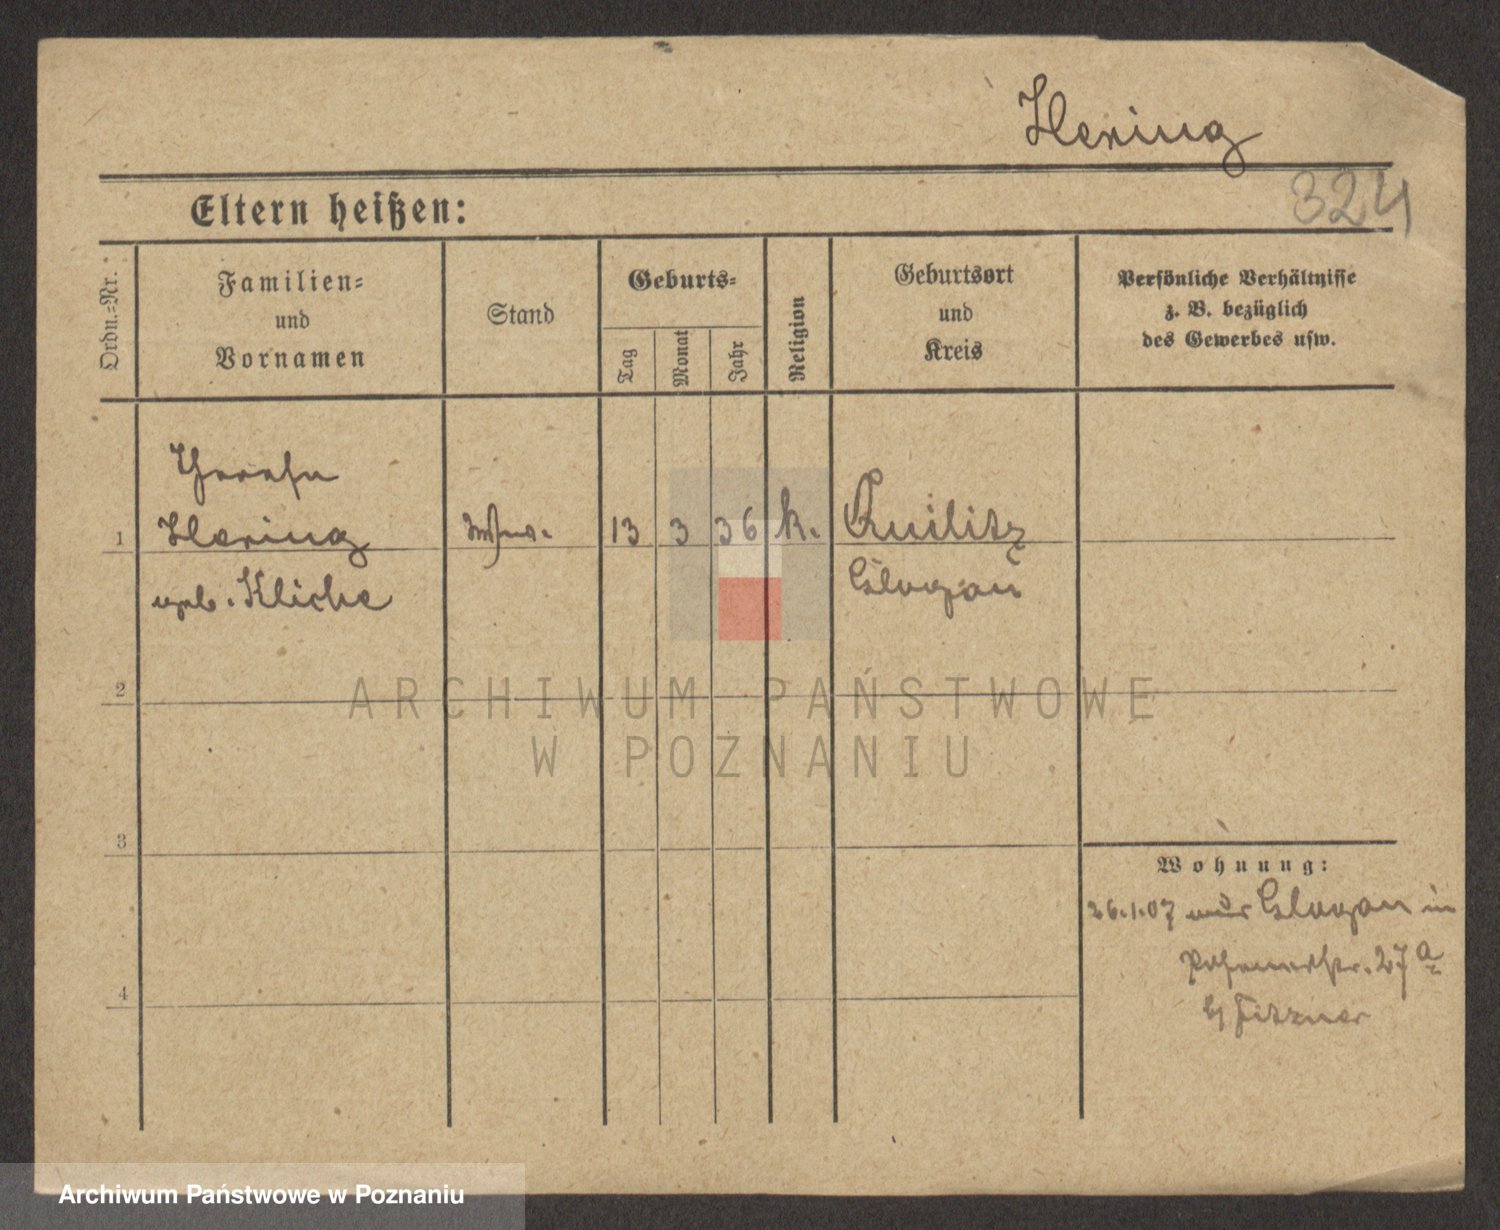 Hering
324
Eltern heißen:
Ordn.-Nr.
Familien-
und
Vornamen
Stand
Geburts-
Tag
Monat
Jahr
Religion
Geburtsort
und
Kreis
Persönliche Verhältnisse
z. B. bezüglich
des Gewerbes usw.
Theresia
1 Hering Wwe. 13 3 36 k. Quilitz
geb. Kliche Glogau
2
ARCHIWUM PAŃSTWOWE
W POZNANIU
3
Wohnung:
26.1.07 aus Glogau in
27 a
4
b/ Fitzner
Archiwum Państwowe w Poznaniu